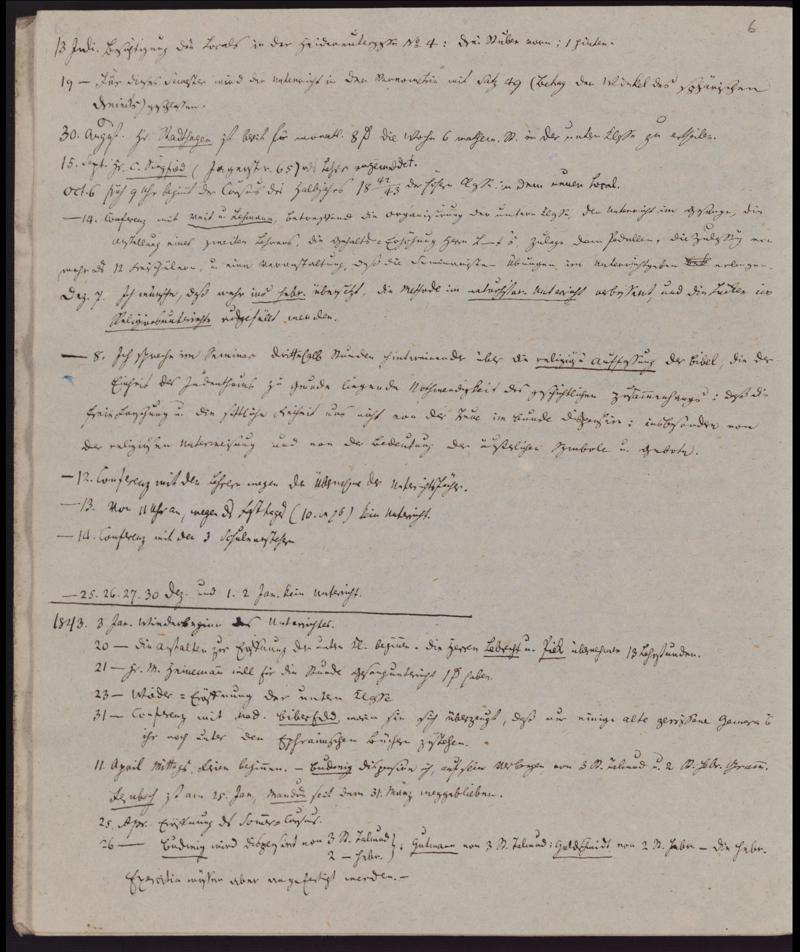 6
13 Juli. Besichtigung des Locals in der Heidereutergasse No 4: drei Stuben vorn; 1 hinten.
19 — Für dieses Semester wird der Unterricht in der Stereometrie mit Satz 49 (Betrag der Winkel des sphärischen
Dreiecks) geschlossen.
30. August. Hr. Stadthagen ist bereit für monatl. 8 die Woche 6 mathem. St. in der untern Classe zu ertheilen.
15. Sept. Hr. C. Siegfried (Jägerstr. 65) als Lehrer angemeldet.
Oct. 6 früh 9 Uhr beginnt der Cursus des Halbjahres 18 42/43 der höhern Classe in dem neuen Local.
— 14. Conferenz mit Veit u. Lehmann, betreffend die Organisirung der untern Classe, den Unterricht im Gesange, die
Anstellung eines zweiten Lehrers, die Gehalts-Erhöhung Herrn Zulage dem Pedellen, die Zulassung von
mehr als 12 Freischülern, u. eine Veranstaltung, daß die Seminaristen Übungen im Unterrichtgeben erlangen.
Dez. 7. Ich wünschte, daß mehr ins Hebr. übersetzt, die Methode im Unterricht verbessert und die Lücken im
Religionsunterrichte ausgefüllt werden.
— 8. Ich sprach im Seminar dritthalb Stunden hintereinander über die religiöse Auffassung der Bibel, die der
Einheit des Judenthums zu Grunde liegende Nothwendigkeit des geschichtlichen Zusammenhangs: daß die
freie Forschung u. die sittliche Freiheit uns nicht von der Treue im Bunde dispensire; insbesondere von
der religiösen Unterweisung und von der Bedeutung der äußerlichen Symbole u. Gebote.
— 12. Conferenz mit den Lehrern wegen der Übernahme der Unterrichtsfächer.
— 13. Von 11 Uhr an, wegen des Fasttages (10. ) kein Unterricht.
— 14. Conferenz mit den 3 Schulvorstehern
— 25. 26. 27. 30 Dez. und 1. 2 Jan. kein Unterricht.
1843. 3 Jan. Wiederbeginn des Unterrichtes.
20 — die Anstalten zur Eröffnung der untern Cl. beginnen. die Herren Lebrecht u. übernehmen 13 Lehrstunden.
21 — Hr. M. Heinemann will für die Stunde Gesangunterricht 1 haben.
23 — Wieder-Eröffnung der untern Classe
31 — Conferenz mit Mad. Biberfeld worin sie sich überzeugt, daß nur einige alte zerrissene Gemara's
ihr noch unter den Ephraimschen Büchern zustehen.
11. April Mittags, Ferien beginnen. — Ludewig dispensire ich, auf sein Verlangen von 3 St. Talmud u. 2 St. hebr. Gramm.
ist am 25. Jan, seit dem 31. März weggeblieben.
25. Apr. Eröffnung des Sommer-Cursus.
26 — Ludewig wird dispensirt von 3 St. Talmud 2 — Hebr.); Gutmann von 3 St. Talmud; Goldschmidt von 2 St. Hebr. — Die Hebr.
Exercitia müssen aber angefertigt werden. —